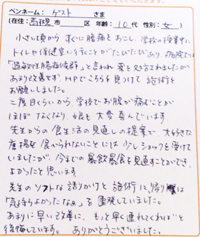 ペンネーム： ゲスト さま
(在住： 高槻 市 区 年齢： 10代 性別： 女 )
小さい頃から すぐに腹痛を おこし、学校の授業中に
トイレや保健室へ行くことが たびたびだったり、病院では
「過敏性腸症候群」と言われ 薬を処方されましたが
あまり改善せず HPでこちらを 見つけて 施術を
お願いしました。
二度目くらいから 学校で お腹が痛むことが
ほぼなくなり 娘も大変喜んでいます。
先生からの 食生活の見直しの提案で 大好きな
食べれないことには 少しショックを 受けて
いましたが、今までの 暴飲暴食を 見直すことができ、
よかったと思います。
先生の ソフトな 語りかけと 施術に、帰り
「気持ちよかったなぁ」を 連呼していました。
あまりに早い改善に、もっと早く連れてくればと
後悔しています。 ありがとうございました。